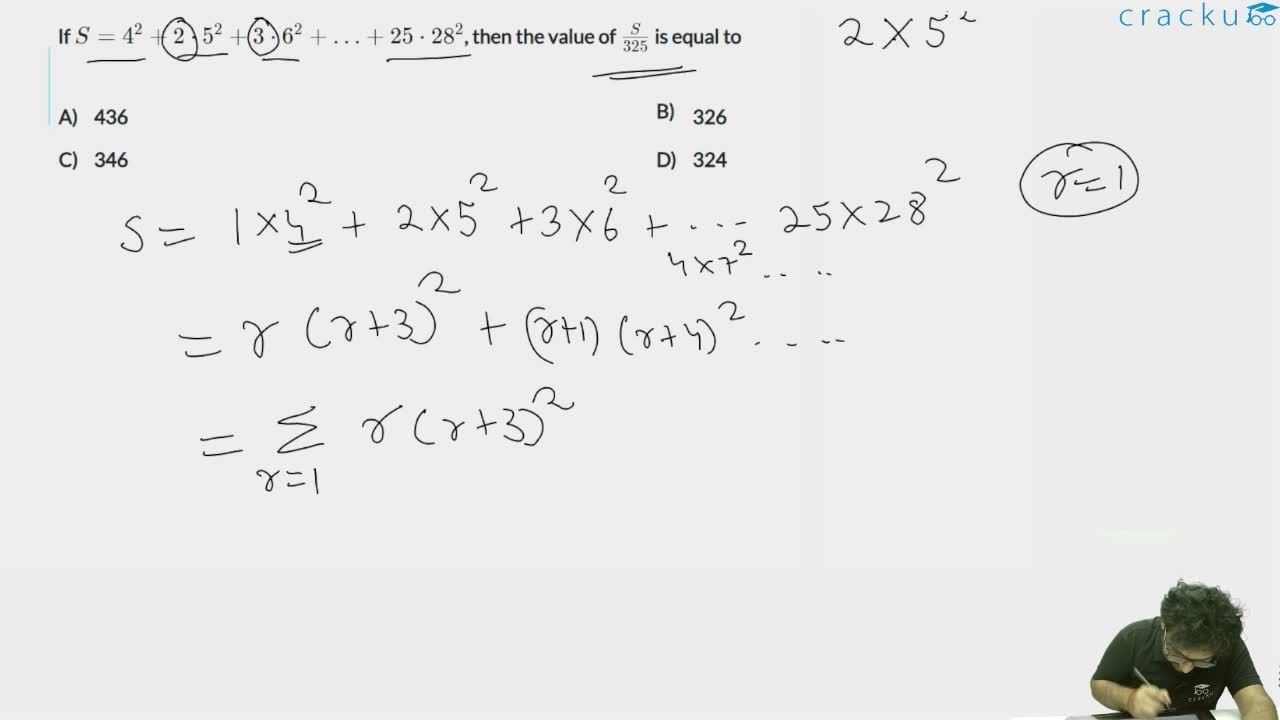 cracku
If S = 4² + 2 · 5² + 3 · 6² + … + 25 · 28², then the value of S/325 is equal to
2 × 5²
A) 436
B) 326
C) 346
D) 324
r = 1
S = 1 × 4² + 2 × 5² + 3 × 6² + ... 25 × 28²
4 × 7² .. ..
= r (r+3)² + (r+1) (r+4)² . - --
= Σ r (r+3)²
r=1
cracku